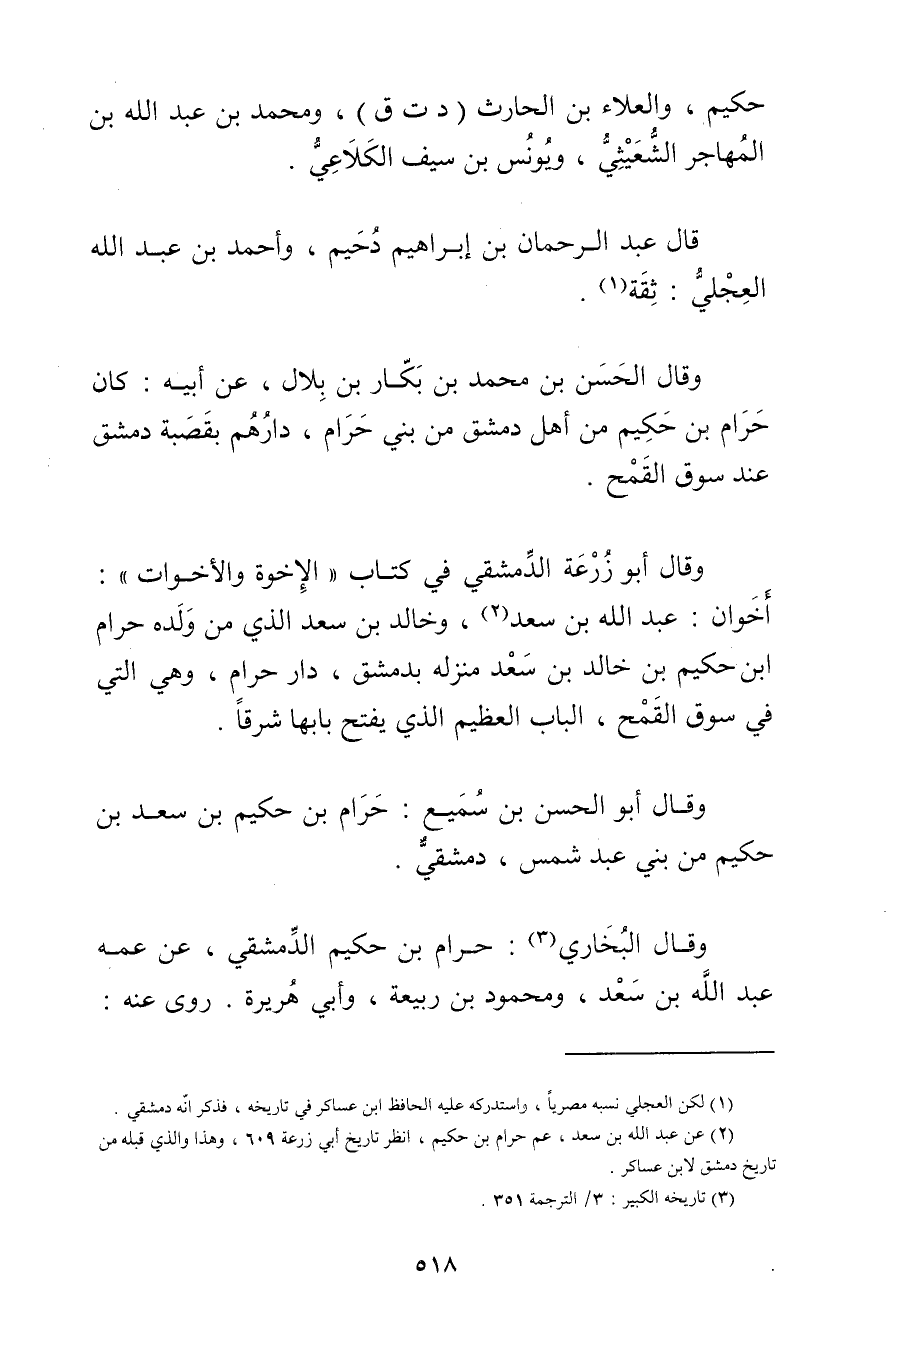 حكيم ، والعلاء بن الحارث ( د ت ق ) ، ومحمد بن عبد الله بن
المُهاجر الشُّعَيْثِيُّ ، ويُونُس بن سيف الكَلَاعِيُّ .
قال عبد الرحمان بن إبراهيم دُحَيم ، وأحمد بن عبد الله
العِجْليُّ : ثِقَة(١) .
وقال الحَسَن بن محمد بن بَكّار بن بِلال ، عن أبيه : كان
حَرَام بن حَكِيم من أهل دمشق من بني حَرَام ، دارُهُم بقَصَبة دمشق
عند سوق القَمْح .
وقال أبو زُرْعَة الدِّمشقي في كتاب « الإِخوة والأخوات » :
أَخَوان : عبد الله بن سعد(٢) ، وخالد بن سعد الذي من وَلَده حرام
ابن حكيم بن خالد بن سَعْد منزله بدمشق ، دار حرام ، وهي التي
في سوق القَمْح ، الباب العظيم الذي يفتح بابها شرقاً .
وقال أبو الحسن بن سُمَيع : حَرَام بن حكيم بن سعد بن
حكيم من بني عبد شمس ، دمشقيٌّ .
وقال البُخَاري(٣) : حرام بن حكيم الدِّمشقي ، عن عمه
عبد اللَّه بن سَعْد ، ومحمود بن ربيعة ، وأبي هُريرة . روى عنه :
(١) لكن العجلي نسبه مصرياً ، واستدركه عليه الحافظ ابن عساكر في تاريخه ، فذكر انّه دمشقي .
(٢) عن عبد الله بن سعد ، عم حرام بن حكيم ، انظر تاريخ أبي زرعة ٦٠٩ ، وهذا والذي قبله من
تاريخ دمشق لابن عساكر .
(٣) تاريخه الكبير : ٣/ الترجمة ٣٥١ .
٥١٨